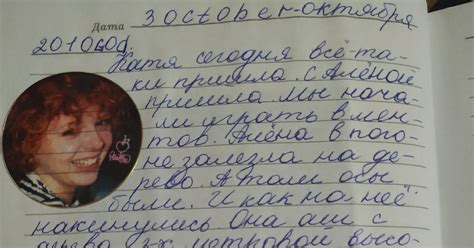 Дата 3 October-октября
2010 год.
Катя сегодня всё-та-
ки пришла. С Алёной
пришла. Мы нача-
ли играть в мен-
тов. Алёна в пого-
не залезла на де-
рево. А там осы
были. И как на неё
накинулись. Она аш с
дерева 3х метровой высо-